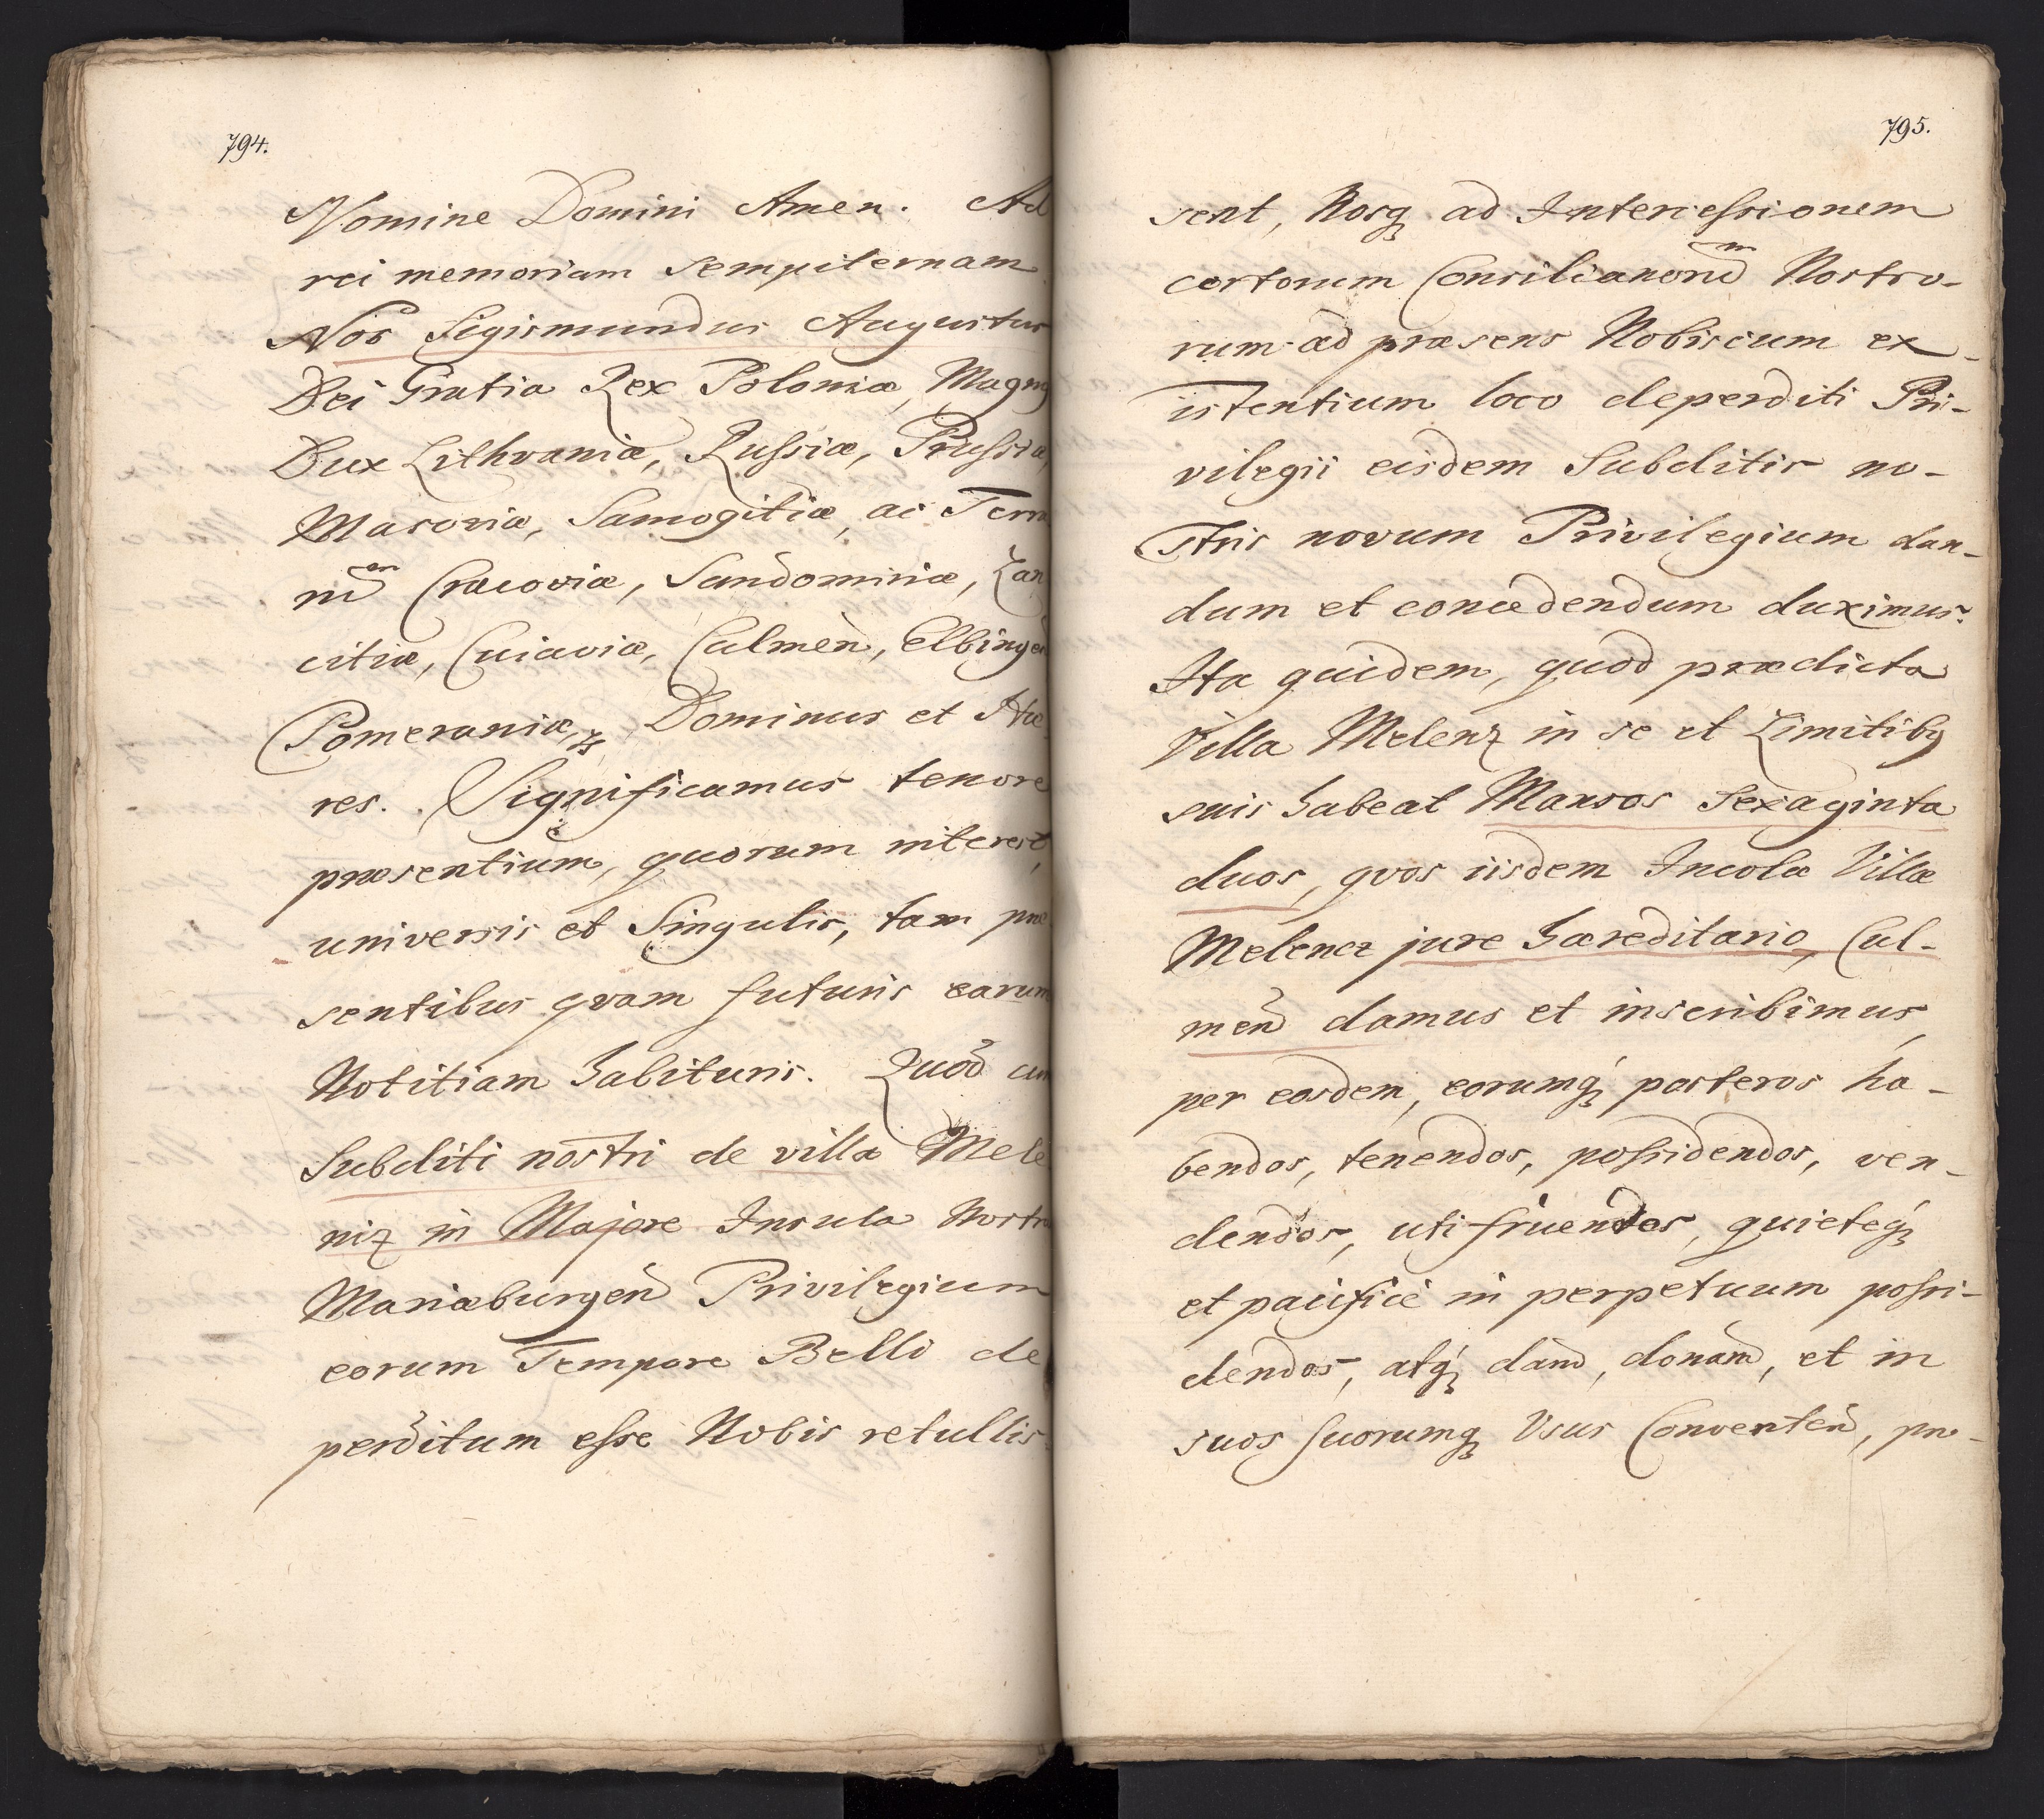 794.
Nomine Domini Amen. Ad
rei memoriam sempiternam
Nos Sigismundus Augustus
Dei Gratia Rex Poloniæ, Magnꝰ
Dux Lithvaniæ, Russiæ, Prussiæ,
Masoviæ, Samogitiæ, ac Terra
rũ Cracoviæ, Sandomiriæ, Lan
citiæ, Cuiaviæ, Culmen̄, Elbingen̄
Pomeraniæ, Dominus et Hæ
res. Significamus tenore
præsentium, quorum interest,
universis et Singulis, tam præ
sentibus qvam futuris earum
Notitiam habituris. Quod cum
Subditi nostri de villa Mele
niz in Majore Insula Nostra
Mariæburgen̄ Privilegium
eorum Tempore Belli de
perditum esse Nobis retullis
795.
sent, Nosq̨ ad Intercessionem
certorum Consiliariorũ Nostro-
rum ad præsens Nobiscum ex-
istentium loco deperditi Pri-
vilegii eisdem Subditis no-
stris novum Privilegium dan-
dum et concedendum duximus.
Ita quidem, quod prædicta
Villa Melenz in se et Limitibꝰ
suis habeat Mansos Sexaginta
duos, qvos iisdem Incolæ Villæ
Melencz jure hæreditario, Cul-
men̄ damus et inscribimus,
per eosdem, eorumq̨ posteros ha-
bendos, tenendos, possidendos, ven-
dendos, uti fruendos, quieteq̨
et pacifice in perpetuum possi-
dendos, atq̨ dand̄, donand̄, et in
suos suorumq̨ Usus Converten̄d, pro-